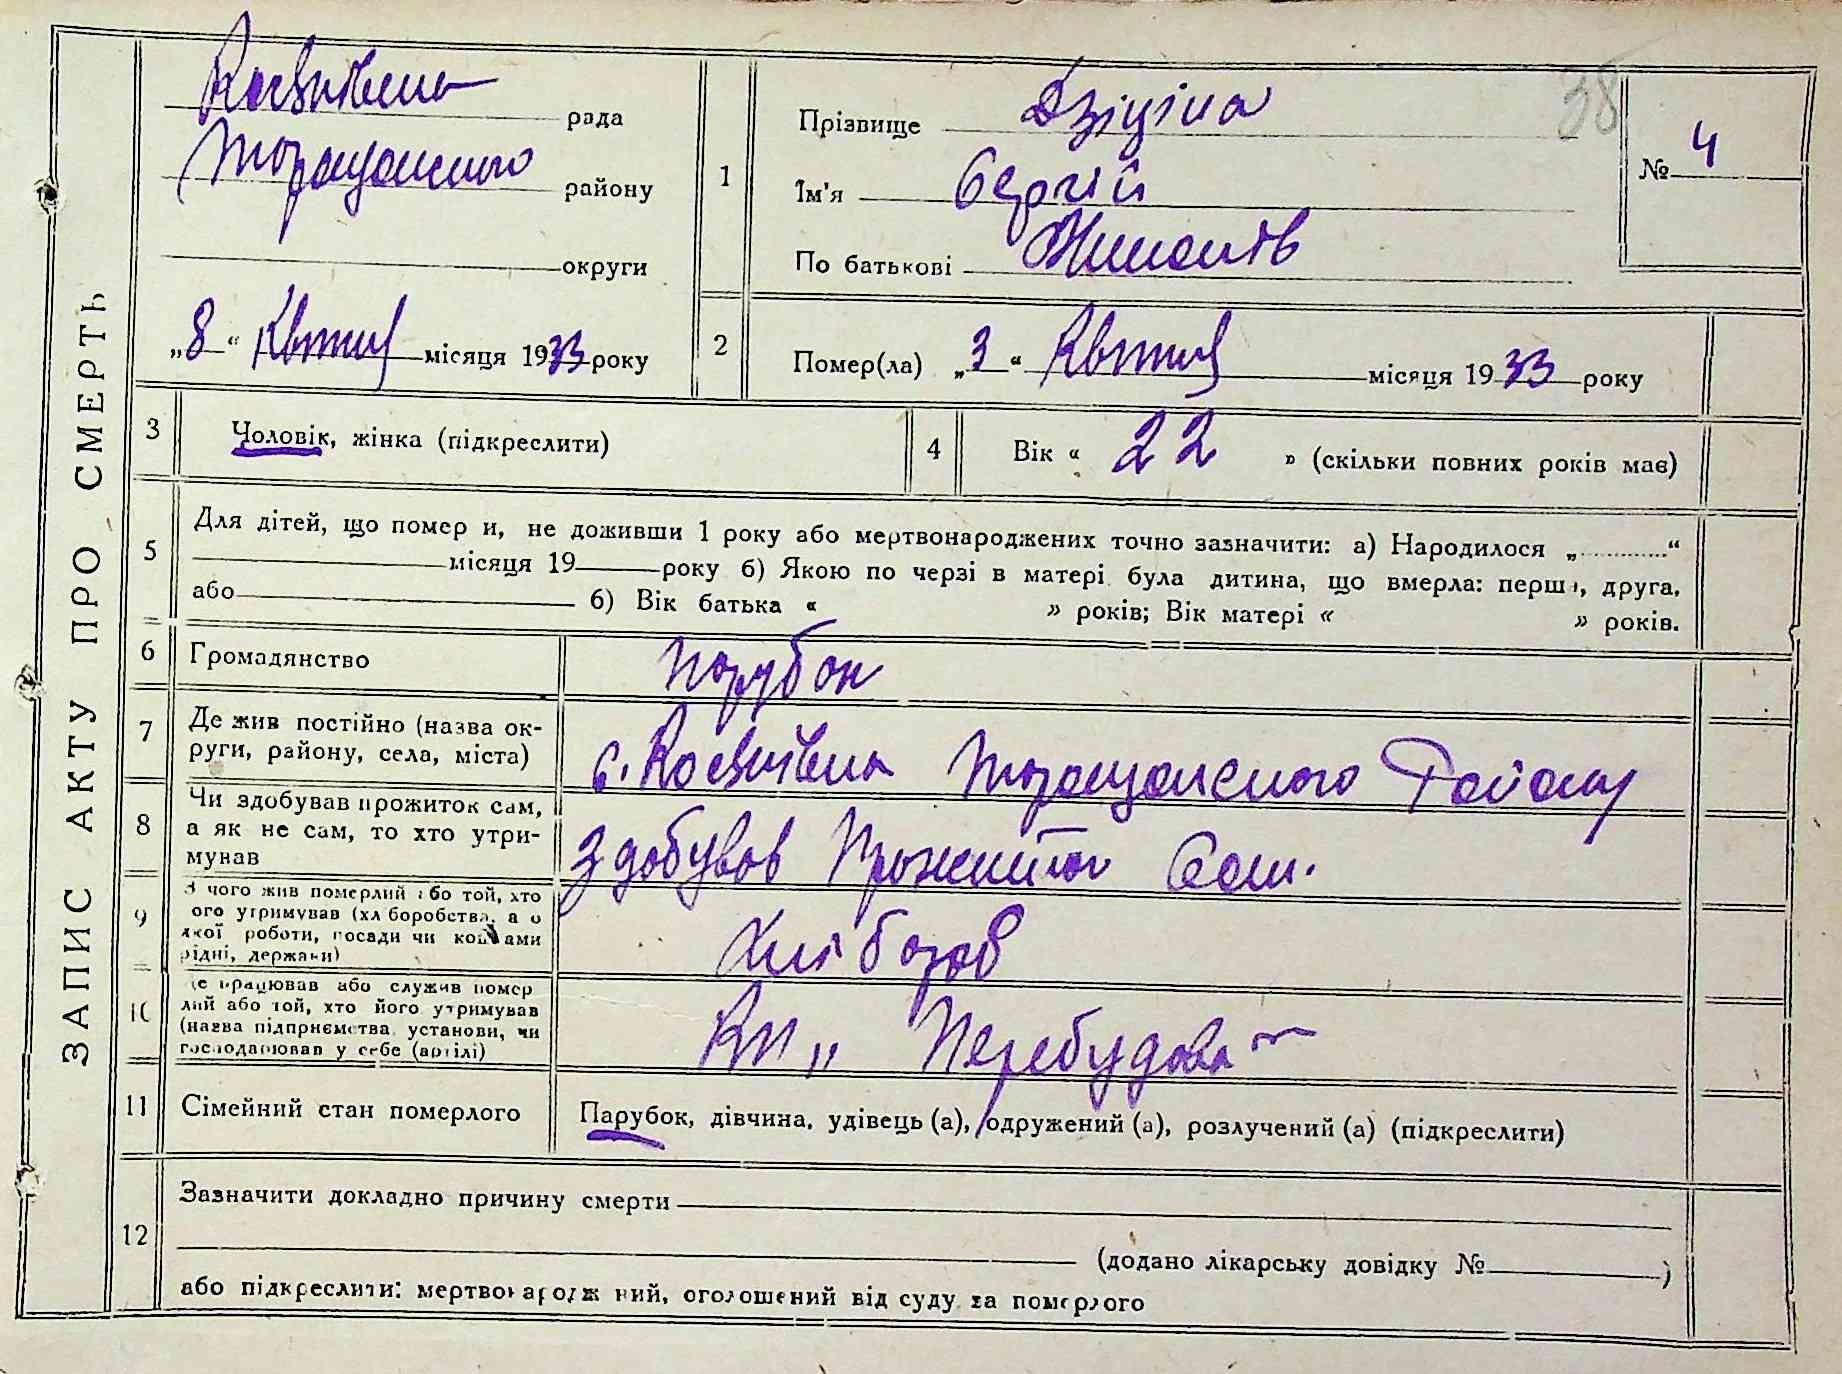 ЗАПИС АКТУ ПРО СМЕРТЬ
рада
Таращанського району
округи
„8“ Квітня місяця 1933 року
38
№ 4
1
Прізвище Дзіціна
Ім'я Сергій
По батькові
2
Помер(ла) „3“ Квітня місяця 1933 року
3
Чоловік, жінка (підкреслити)
4
Вік « 22 » (скільки повних років має)
5
Для дітей, що помер и, не доживши 1 року або мертвонароджених точно зазначити: а) Народилося „............“
місяця 19 року б) Якою по черзі в матері була дитина, що вмерла: перша, друга,
або б) Вік батька « » років; Вік матері « » років.
6
Громадянство
Парубок
7
Де жив постійно (назва ок-
руги, району, села, міста)
с. Таращанського Району
8
Чи здобував прожиток сам,
а як не сам, то хто утри-
мував
Здобував Прожиток Сам.
9
З чого жив померлий або той, хто
ого утримував (хл боробства, а о
якої роботи, посади чи коштами
рідні, держави)
Хлібороб
10
е працював або служив помер
лий або той, хто його утримував
(назва підприємства, установи, чи
господарював у себе (артілі)
„ Перебудова
11
Сімейний стан померлого
Парубок, дівчина, удівець (а), одружений (а), розлучений (а) (підкреслити)
12
Зазначити докладно причину смерти
(додано лікарську довідку № )
або підкреслити: мертвонароджений, оголошений від суду за померлого